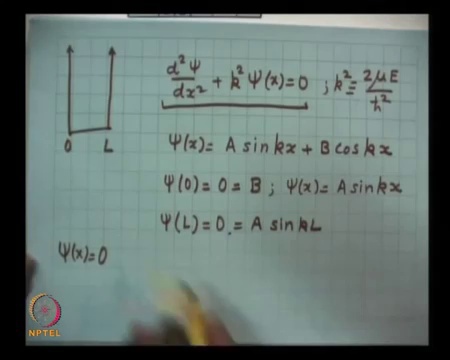 d²Ψ/dx² + k²Ψ(x)=0 ; k² ≡ 2μE/ħ²
0 L
Ψ(x)= A sinkx + B coskx
Ψ(0)=0= B ; Ψ(x)= A sinkx
Ψ(L)=0.= A sinkL
Ψ(x)=0
NPTEL